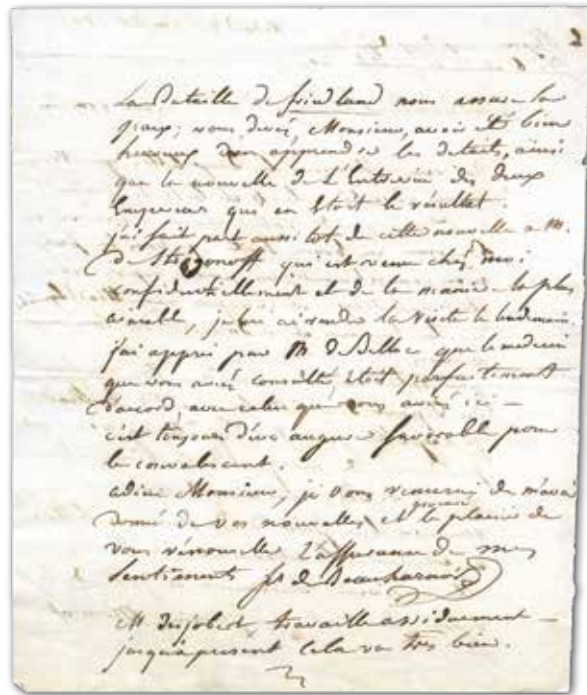 La Bataille de friedland nous assure la
paix; vous devez, Monsieur, avoir été bien
heureux d'en apprendre les details, ainsi
que la nouvelle de l'Entrevue des deux
Empereurs qui en étoit le résultat.
j'ai fait part aussitot de cette nouvelle a M.
de Strogonoff qui est venu chez moi
confidentiellement et de la maniere la plus
aimable, je lui ai rendu la visite le lendemain.
j'ai appris par M de Belloc que le medecin
que vous aviez consulté étoit parfaitement
d'accord, avec celui que vous aviez ici —
c'est toujours d'un augure favorable pour
le convalescent.
adieu Monsieur, je vous remercie de m'avoir
donné de vos nouvelles et le plaisir de
vous rénouveller l'assurance de mes
Sentiments fs de Beauharnois
M Desjobert travaille assiduement —
jusqu'à present cela va très bien.